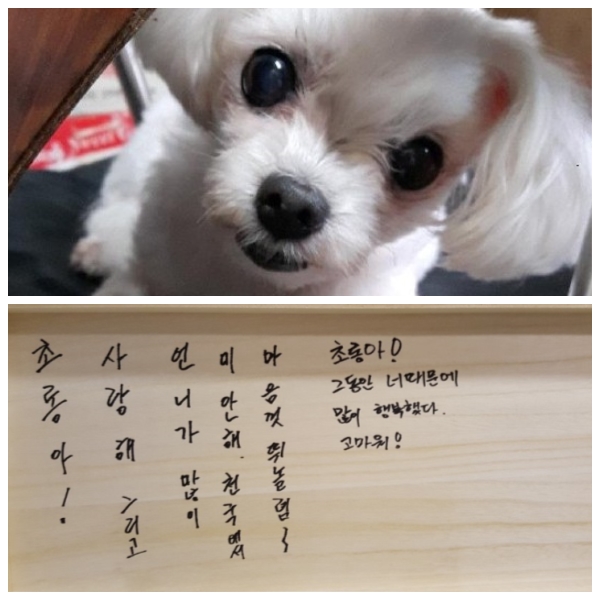 초롱아!
사랑해 그리고
언니가 많이
미안해. 천국에서
마음껏 뛰놀렴~
초롱아!
그동안 너 때문에
많이 행복했다.
고마워!